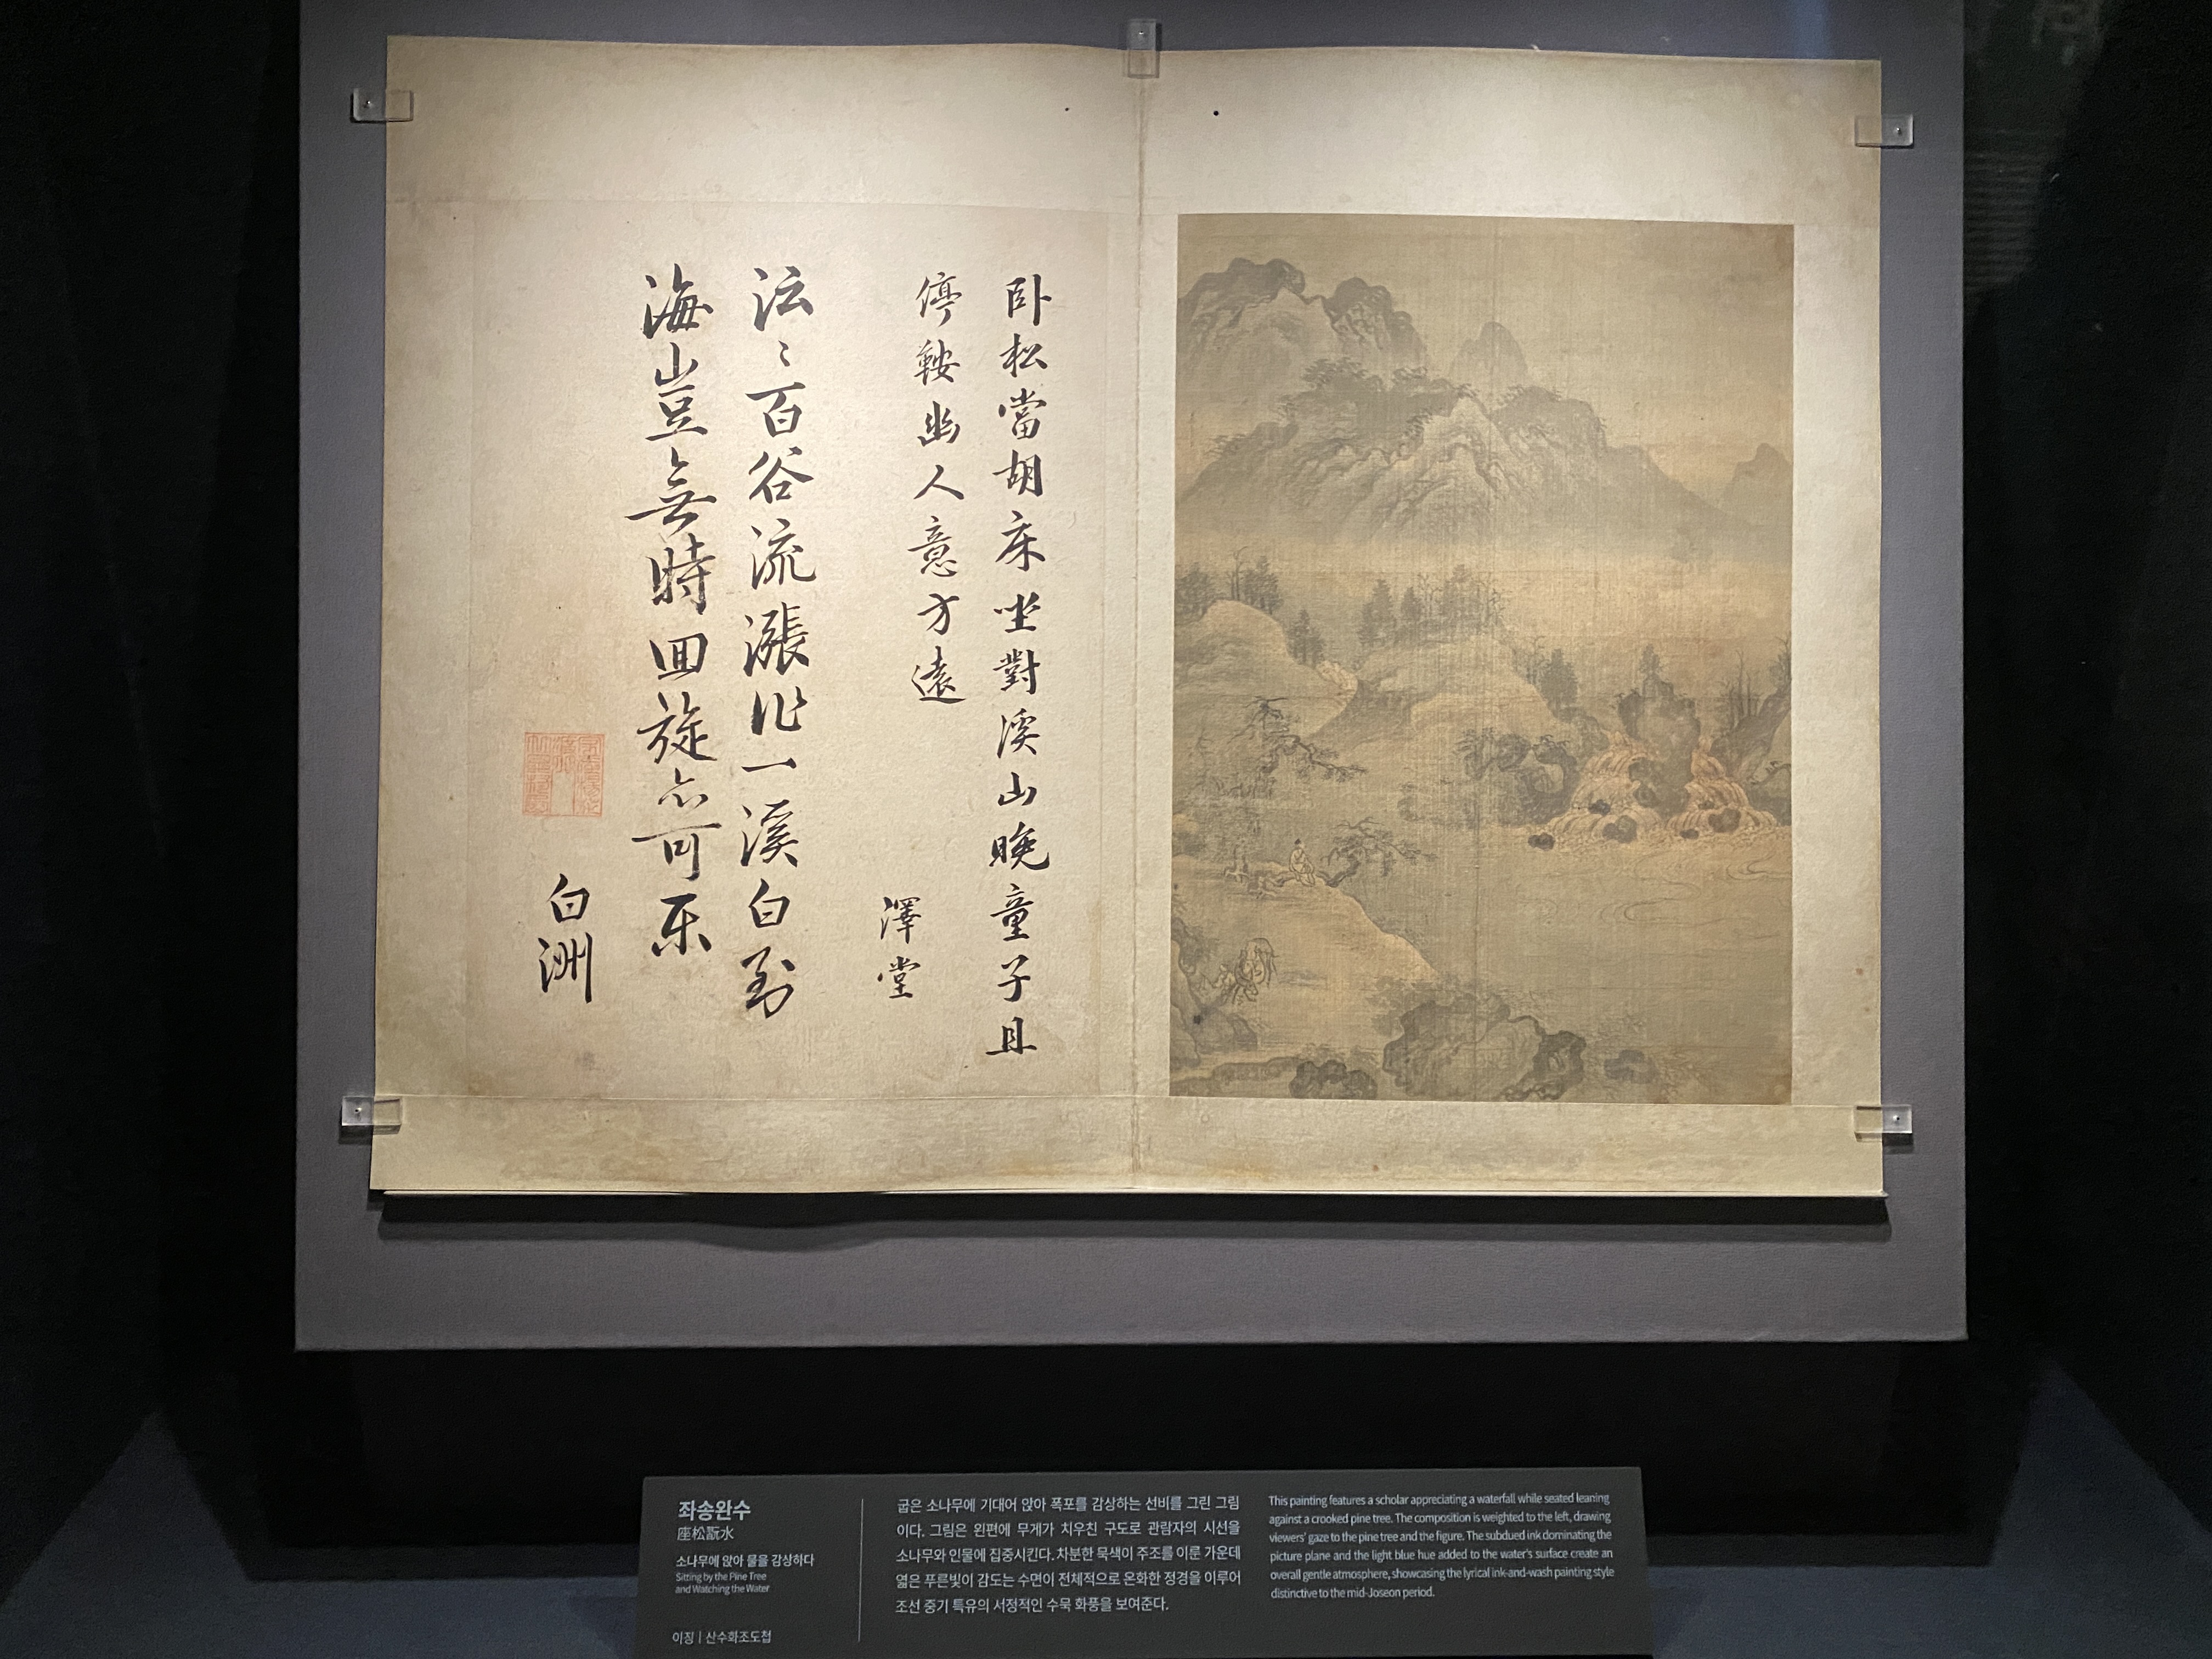 卧松當胡床坐對溪山晚童子且
停鞍幽人意方遠
澤堂
沄〻百谷流漲作一溪白到
海豈無時囬旋亦可乐
白洲
좌송완수
座松翫水
소나무에 앉아 물을 감상하다
Sitting by the Pine Tree
and Watching the Water
이징 | 산수화조도첩
굽은 소나무에 기대어 앉아 폭포를 감상하는 선비를 그린 그림
이다. 그림은 왼편에 무게가 치우친 구도로 관람자의 시선을
소나무와 인물에 집중시킨다. 차분한 묵색이 주조를 이룬 가운데
엷은 푸른빛이 감도는 수면이 전체적으로 온화한 정경을 이루어
조선 중기 특유의 서정적인 수묵 화풍을 보여준다.
This painting features a scholar appreciating a waterfall while seated leaning
against a crooked pine tree. The composition is weighted to the left, drawing
viewers' gaze to the pine tree and the figure. The subdued ink dominating the
picture plane and the light blue hue added to the water's surface create an
overall gentle atmosphere, showcasing the lyrical ink-and-wash painting style
distinctive to the mid-Joseon period.